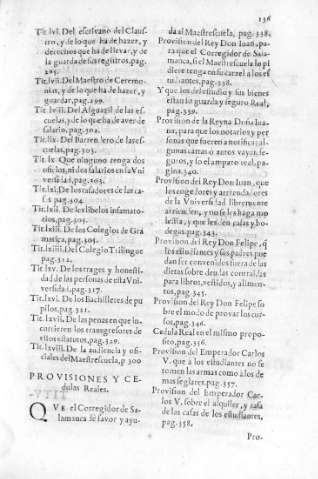 136
Tit.lvi. Del escrivano del Claus-
tro, y de lo que ha de hazer, y
derechos que ha de llevar, y de
la guarda de sus registros, pag.
Tit.lvii. Del Maestro de Ceremo-
nias, y de lo que ha de hazer, y
guardar, pag.299.
Del Alguazil de las es-
cuelas, y de lo que ha de aver de
salario, pag.302.
Tit.lix. Del Barrendero de las es-
cuelas, pag.303.
Tit.lx Que ninguno tenga dos
oficios, ni dos salarios en la Vni
versidad, pag.303.
Tit.lxi. De los tasadores de las ca-
sas pag.304.
Tit.lxii. De los libelos infamato-
rios, pag.305.
Tit.lxiii. De los Colegios de Gra
matica, pag.305.
Del Colegio Trilingue
pag.312.
Tit.lxv. De los trages y honesti-
dad de las personas de esta Vni
versidad, pag.317.
Tit.lxvi. De los Bachilleres de pu
pilos, pag.321.
Tit.lxvii. De las penas en que in-
currieren los transgresores de
estos estatutos, pag.329.
Tit.lxviii. De la audiencia y ofi-
ciales del Maestrescuela, p 300
PROVISIONES Y CE-
dulas Reales.
QVE el Corregidor de Sa-
lamanca de favor y ayu-
da al Maestrescuela, pag.338.
Provision del Rey Don Iuan, pa-
ra que el Corregidor de Sala-
manca, si el Maestrescuela lo pi
diere tenga en su carcel a los es
tudiantes.
Y que los del estudio y sus bienes
estan so guarda y seguro Real,
pag.339.
Provision de la Reyna Doña Iua
na, para que los notarios y per
sonas que fueren a notificar
seguros, y lo el amparo real, pa-
gina.340.
Provision del Rey Don Iuan, que
los
de la Vniversidad libremente
y no se les haga mo
lestia, y que les den casas y bo-
degas. pag.343.
Provision del Rey Don Felipe, q̃
los estudiantes y sus padres pue
dan ser convenidos fuera de las
dietas sobre deudas contraidas
para libros, vestidos, y alimen-
tos, pag.345.
Provision del Rey Don Felipe so
bre el modo de provar los cur-
sos, pag.346.
Cedula Real en el mismo propo-
sito, pag.356.
Provision del Emperador Carlos
V. que a los estudiantes no se
tomen las armas como a los de
mas seglares. pag.357.
Provision del Emperador Car-
los V. sobre el alquiler, y tasa
de las casas de los estudiantes,
pag.358.
Pro-